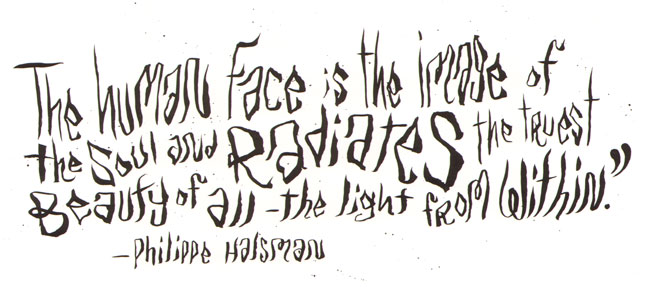 The human Face is the image of
the Soul and Radiates the truest
Beauty of all - the light from Within."
- Philippe Halsman